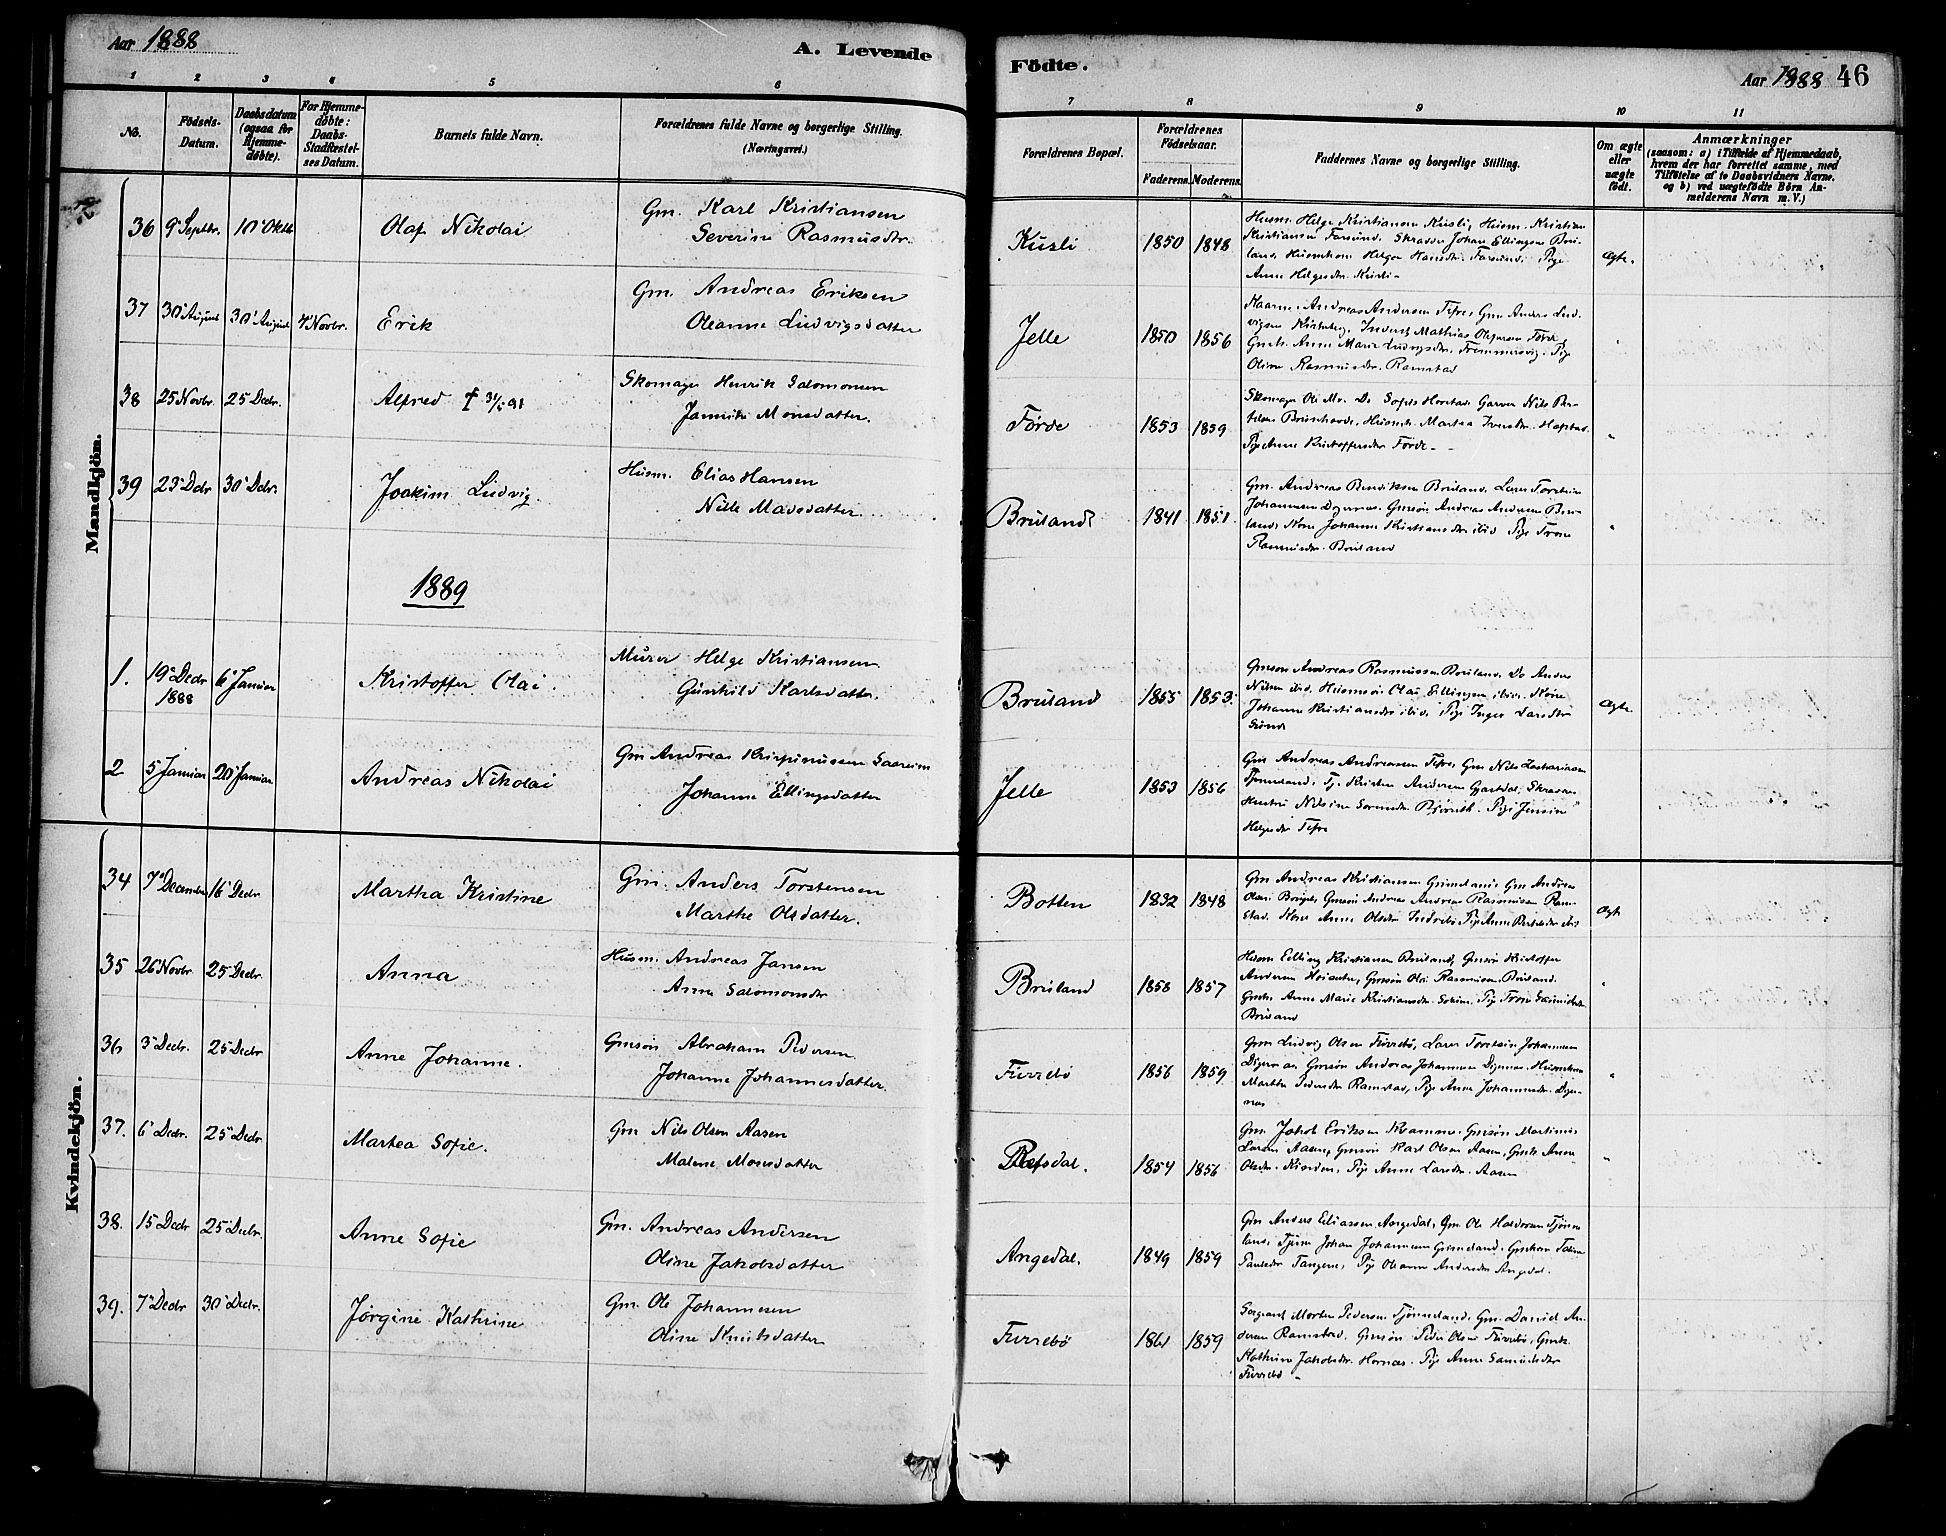 Aar 1888
A. Levende
Fødte.
Aar 1888
46
1 2 3 4 5 6
7 8 9 10 11
No.
Fødsels-
Datum.
Daabsdatum
(ogsaa for
Hjemme-
døbte).
For Hjemme-
døbte:
Daabs-
Stadfæstel-
ses Datum.
Barnets fulde Navn.
Forældrenes fulde Navne og borgerlige Stilling.
(Næringsvei.)
Forældrenes Bopæl.
Forældrenes
Fødselsaar.
Faderens. Moderens.
Faddernes Navne og borgerlige Stilling.
Om ægte
eller
uægte
født.
Anmærkninger
(saasom: a) i Tilfælde af Hjemmedaab,
hvem der har forrettet samme, med
Tilføielse af to Daabsvidners Navne.
og b) ved uægtefødte Børn An-
melderens Navn m.V.)
Mandkjön.
36 9 Septbr. 10 Oktb Olaf Nikolai Gm. Karl Kristiansen
Severine Rasmusdtr.
Kusli 1850 1848
Husm. Helge Kristiansen Kusli, Husm. Kristian
Kristiansen Farsund. Skradder Johan Ellingsen Bru-
land, Husmkone Helga Hansdtr. Farsund. Pige
Anne Helgesdtr. Kusli
Ægte.
37 30 August 30 August 4 Novbr. Erik Gm. Andreas Eriksen
Oleanne Ludvigsdatter
Jelle 1850 1856
Andreas Andersen Tefre, Gm. Anders Lud-
vigsen Mathias Olsen Förde
Anne Marie Ludvigsdtr. Pige
Oline Rasmusdtr. Ramstad
38 25 Novbr. 25 Decbr. Alfred † Skomager Henrik Salomonsen
Jannike Monsdatter
Førde 1853 1859
Skomager Ole Mo. Do Sofus Horstad, Garver Nils Ber-
Martea Iversdtr. Hafstad
Pige Anne Kristoffersdtr Förde
39 23 Decbr 30 Decbr. Joakim Ludvig. Husm. Elias Hansen
Nille Madsdatter
Bruland 1841 1851
Gm. Andreas Bendiksen Bruland. Lærer Torstein
Johannesen Digernæs. Gmsön Andreas Andersen Bru-
land, Kone Johanne Kristiansdtr. ibid Pige Trone
Rasmusdtr. Bruland
1889
1. 19 Decbr 1888 6 Januar Kristoffer Olai. Murer Helge Kristiansen
Gunhild Karlsdatter.
Bruland 1855 1853
Gmsøn Andreas Rasmussen Bruland, Do Anders
Nilsen ibid, Husmsön Olai Ellingsen ibid. Kone
Johanne Kristiansdtr ibid, Pige Inger Larsdtr
Sunde
Ægte.
2 5 Januar 20 Januar Andreas Nikolai Gm Andreas Krispinussen Saareim
Johanne Ellingsdatter
Jelle 1853 1856
Gm Andreas Andreassen Tefre, Gm Nils Zachariasen
Tjönneland, Tj. Kristen Andersen Gjæsdal,
Nilsine Pige Jensine
Helgesdtr Tefre
Kvindekjön.
34 7 December 16 Decbr Martha Kristine Gm. Anders Torstensen
Marthe Olsdatter.
Botten 1832 1848
Gm Andreas Kristiansen Grimeland, Gm Andreas
Olsen Gmsön Andreas Andreas Rasmussen Ram-
stad. Kone Anne Olsdtr Indrebö Pige Anne ibid
Ægte
35 26 Novbr. 25 Decbr. Anna Husm. Andreas Jansen
Anne Salomonsdtr
Bruland 1858 1857
Husm Elling Kristiansen Bruland, Gmsön Kristoffer
Andersen Gmsön Ole Rasmussen Bruland.
Gmk. Anne Marie Kristiansdtr. Pige Trone
Bruland
36 3 Decbr. 25 Decbr Anne Johanne. Gmsön Abraham Pedersen
Johanne Johannesdatter.
Furrebö 1856 1859
Gm Ludvig Olsen Furrebö, Lærer Torstein Johannesen
Digernæs Gmsön Andreas Johannesen Digernæs Husmkone
Martha Pedersdtr Ramstad, Pige Anne Johannesdtr Diger-
næs
37. 6 Decbr. 25 Decbr Martea Sofie. Gm Nils Olsen Aasen
Malene Monsdatter
Refsdal. 1854 1856
Gm. Jakob Eriksen Kvamme, Gmsön Martinus
Larsen Aasen, Gmsön Karl Olsen Aasen, Gmk. Anne
Olsdtr. Pige Anne Larsdtr. Aasen
38. 15 Decbr 25 Decbr. Anne Sofie Gm. Andreas Andersen
Oline Jakobsdatter
Angedal. 1849 1859
Gm Anders Eliassen Angedal, Gm. Ole Haldorsen Tjönne-
land, Johan Johannesen Grimeland,
Paulsdtr Tangen, Pige Oleanne Andersdtr Angedal.
39. 7 Decbr 30 Decbr. Jørgine Kathrine Gm. Ole Johannesen
Oline Knutsdatter
Furrebö 1861 1859
Sergeant Morten Pedersen Tjönneland, Gm. Daniel An-
dersen Ramstad, Gmsön Peder Olsen Furrebö, Gmk.
Kathrine Jakobsdtr. Hornæs. Pige Anne Samuelsdtr
Furrebö